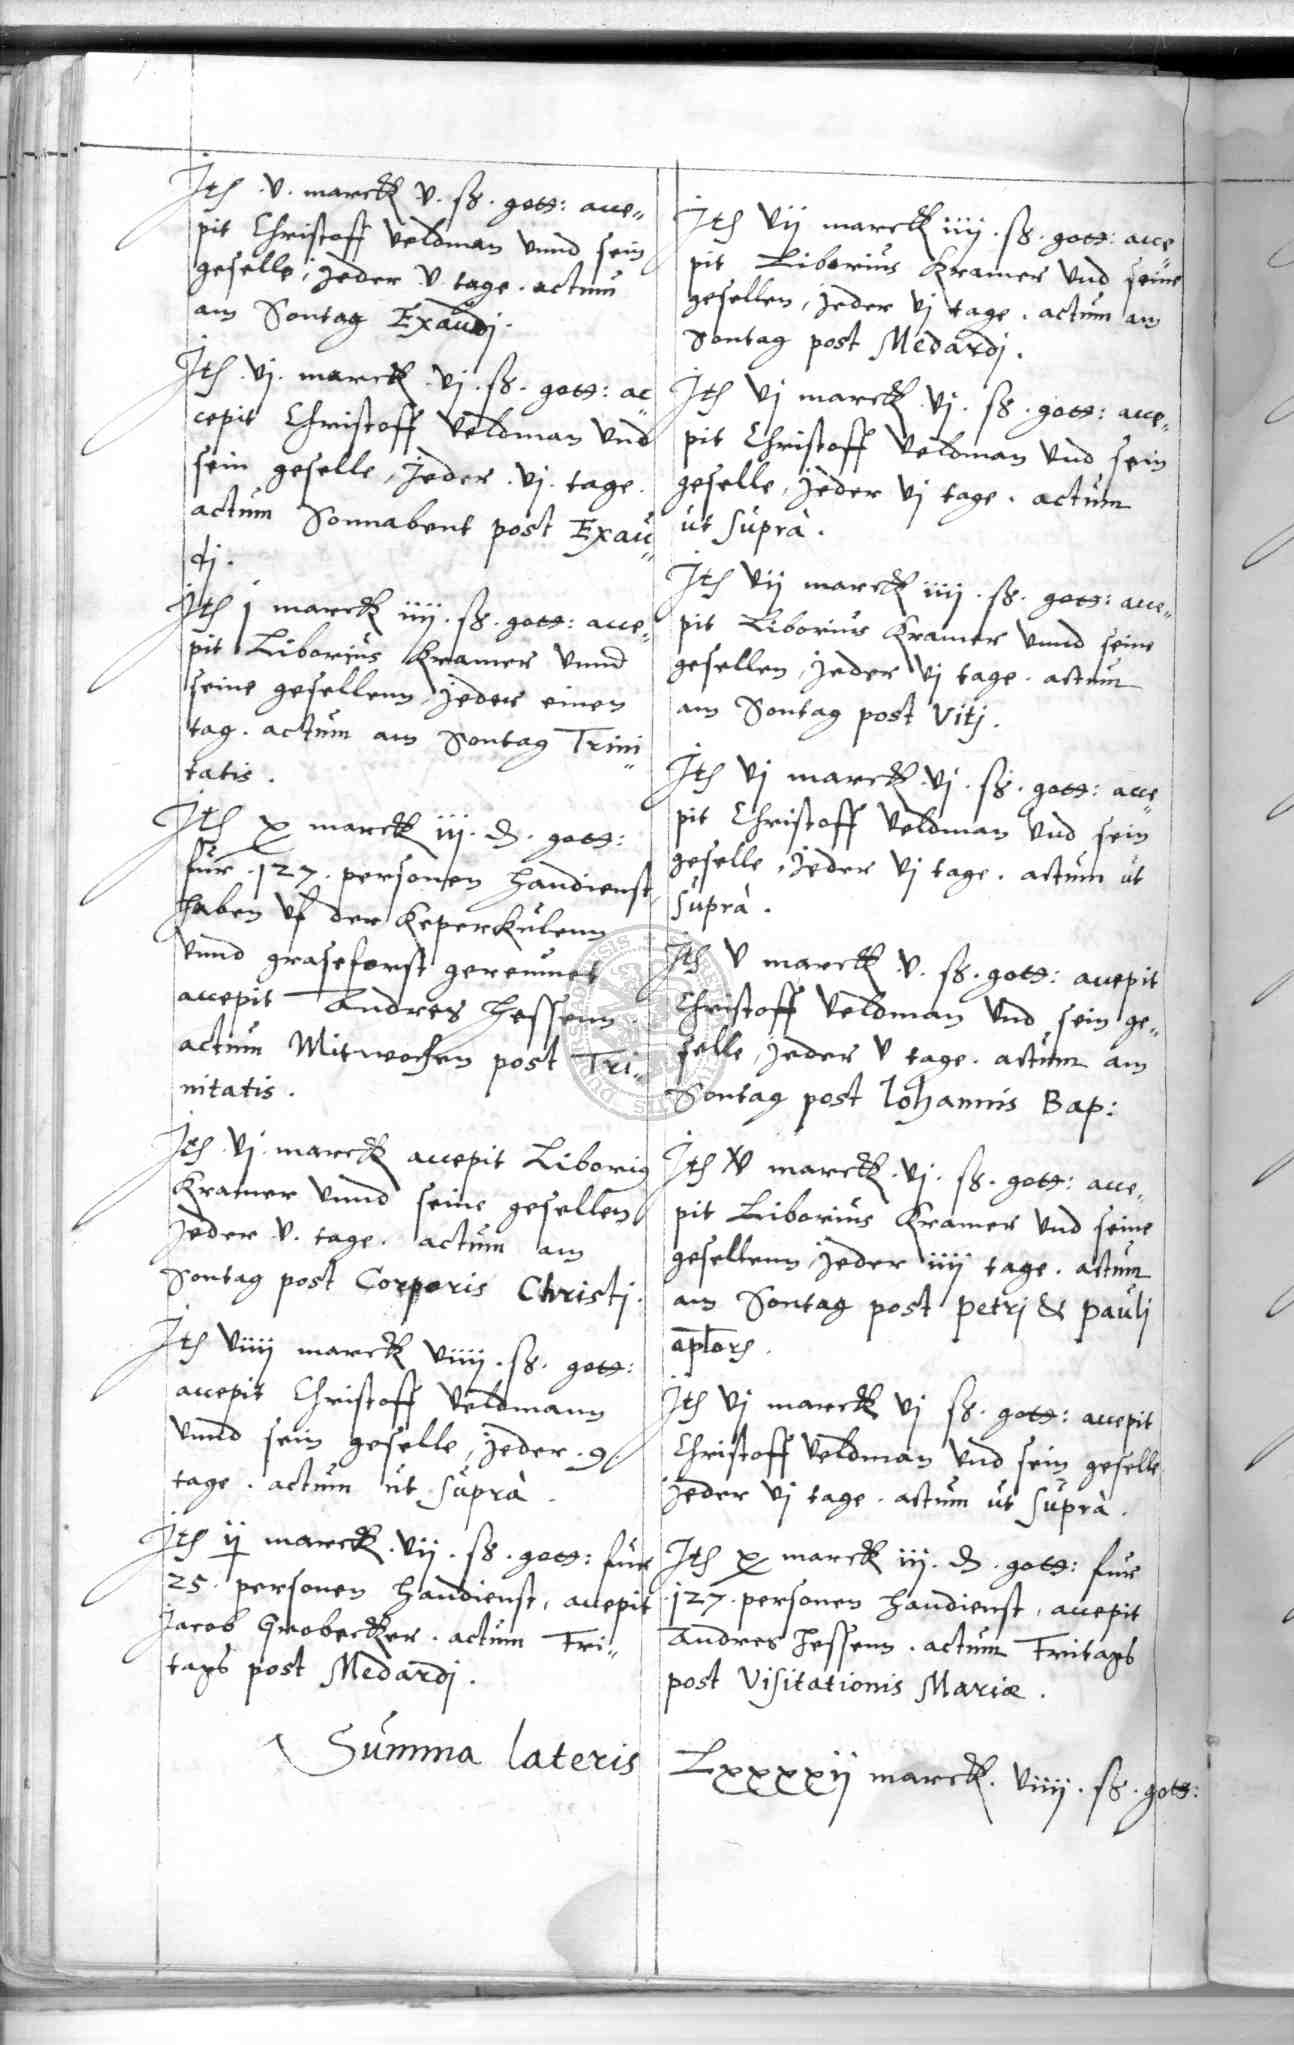 Ith .v. marck v. ß. gott: acce„
pit Christoff Veldman vnnd sein
geselle, jeder v tage. actum
am Sontag Exaudj.
Ith .vj. marck .vj. ß. gott: ac„
cepit Christoff Veldman vnd
sein geselle, jeder .vj. tage.
actum Sonnabent post Exau„
dj.
Ith j marck iiij. ß. gott: acce„
pit Liborius Kramer vnnd
seine gesellenn jeder einen
tag. actum am Sontag Trini„
tatis.
Ith x marck iij. d. gott:
für .127. personen handienst,
haben vf der Keperkulenn
vnnd graseforst gereumet
accepit Andres Hessenn.
actum Mitwochen post Tri„
nitatis.
Ith .vj. marck accepit Liborius
Kramer vnnd seine gesellen
jeder .v. tage. actum am
Sontag post Corporis Christj.
Ith viiij marck viiij. ß. gott:
accepit Christoff Veldmann
vnnd sein geselle, jeder .9.
tage. actum ut suprà.
Ith ij marck .vij. ß. gott: für
25. personen handienst, accepit
Jacob Grobecker. actum Fri„
tags post Medardj.
Summa lateris
Ith vij marck iiij. ß. gott: acce„
pit Liborius Kramer vnd seine
gesellen, jeder vj tage. actum am
Sontag post Medardj.
Ith vj marck .vj. ß. gott: acce„
pit Christoff Veldman vnd sein
geselle, jeder vj tage. actum
ut suprà.
Ith vij marck iiij. ß. gott: acce„
pit Liborius Kramer vnnd seine
gesellen, jeder vj tage. actum
am Sontag post Vitj.
Ith vj marck .vj. ß. gott: acce„
pit Christoff Veldman vnd sein
geselle, jeder vj tage. actum ut
suprà.
Ith v marck .v. ß. gott: accepit
Christoff Veldman vnd sein ge„
selle, jeder v tage. actum am
Sontag post Iohannis Bap:
Ith iv marck .vj. ß. gott: acce„
pit Liborius Kramer vnd seine
gesellenn, jeder iiij tage. actum
am Sontag post Petrj & Paulj
aplors.
Ith vj marck vj ß. gott: accepit
Christoff Veldman vnd sein geselle
jeder vj tage. actum ut suprà.
Ith x marck iij. d. gott: fur
.127. personen handienst, accepit
Andres Hessenn. actum Freitags
post Visitationis Mariæ.
Lxxxxij marck. viiij. ß. gott: